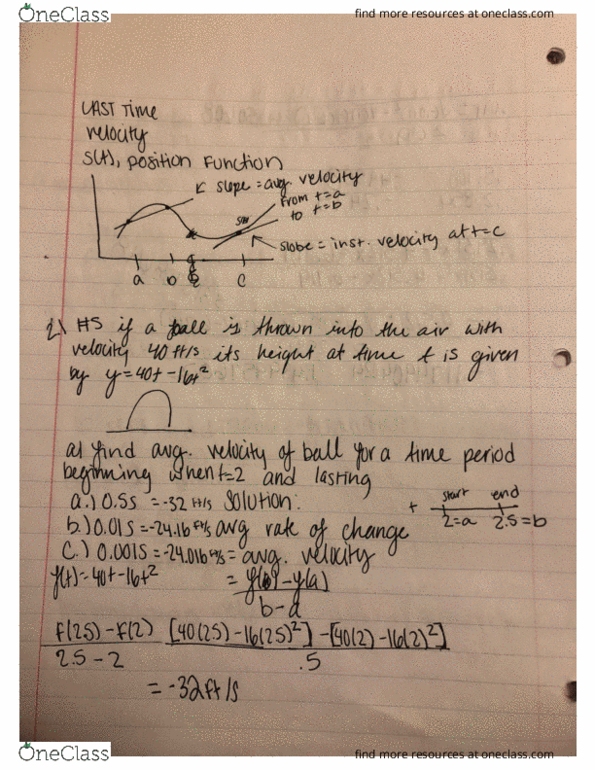 OneClass
find more resources at oneclass.com
LAST Time
velocity
S(t), position Function
slope = avg. velocity
From t=a
to t=b
slobe = inst. velocity at t=c
a b c
#5 if a ball is thrown into the air with
velocity 40 ft/s its height at time t is given
by y=40t-16t²
a) find avg. velocity of ball for a time period
beginning when t=2 and lasting
a.) 0.5s = -32 ft/s Solution:
t start end
2=a 2.5=b
b.) 0.01s = -24.16 ft/s avg rate of change
c.) 0.001s = -24.016 ft/s = avg. velocity
f(t)=40t-16t² = y(b)-y(a)
b-a
f(2.5)-f(2) [40(2.5)-16(2.5)²]-[40(2)-16(2)²]
2.5-2 .5
= -32ft/s
OneClass
find more resources at oneclass.com